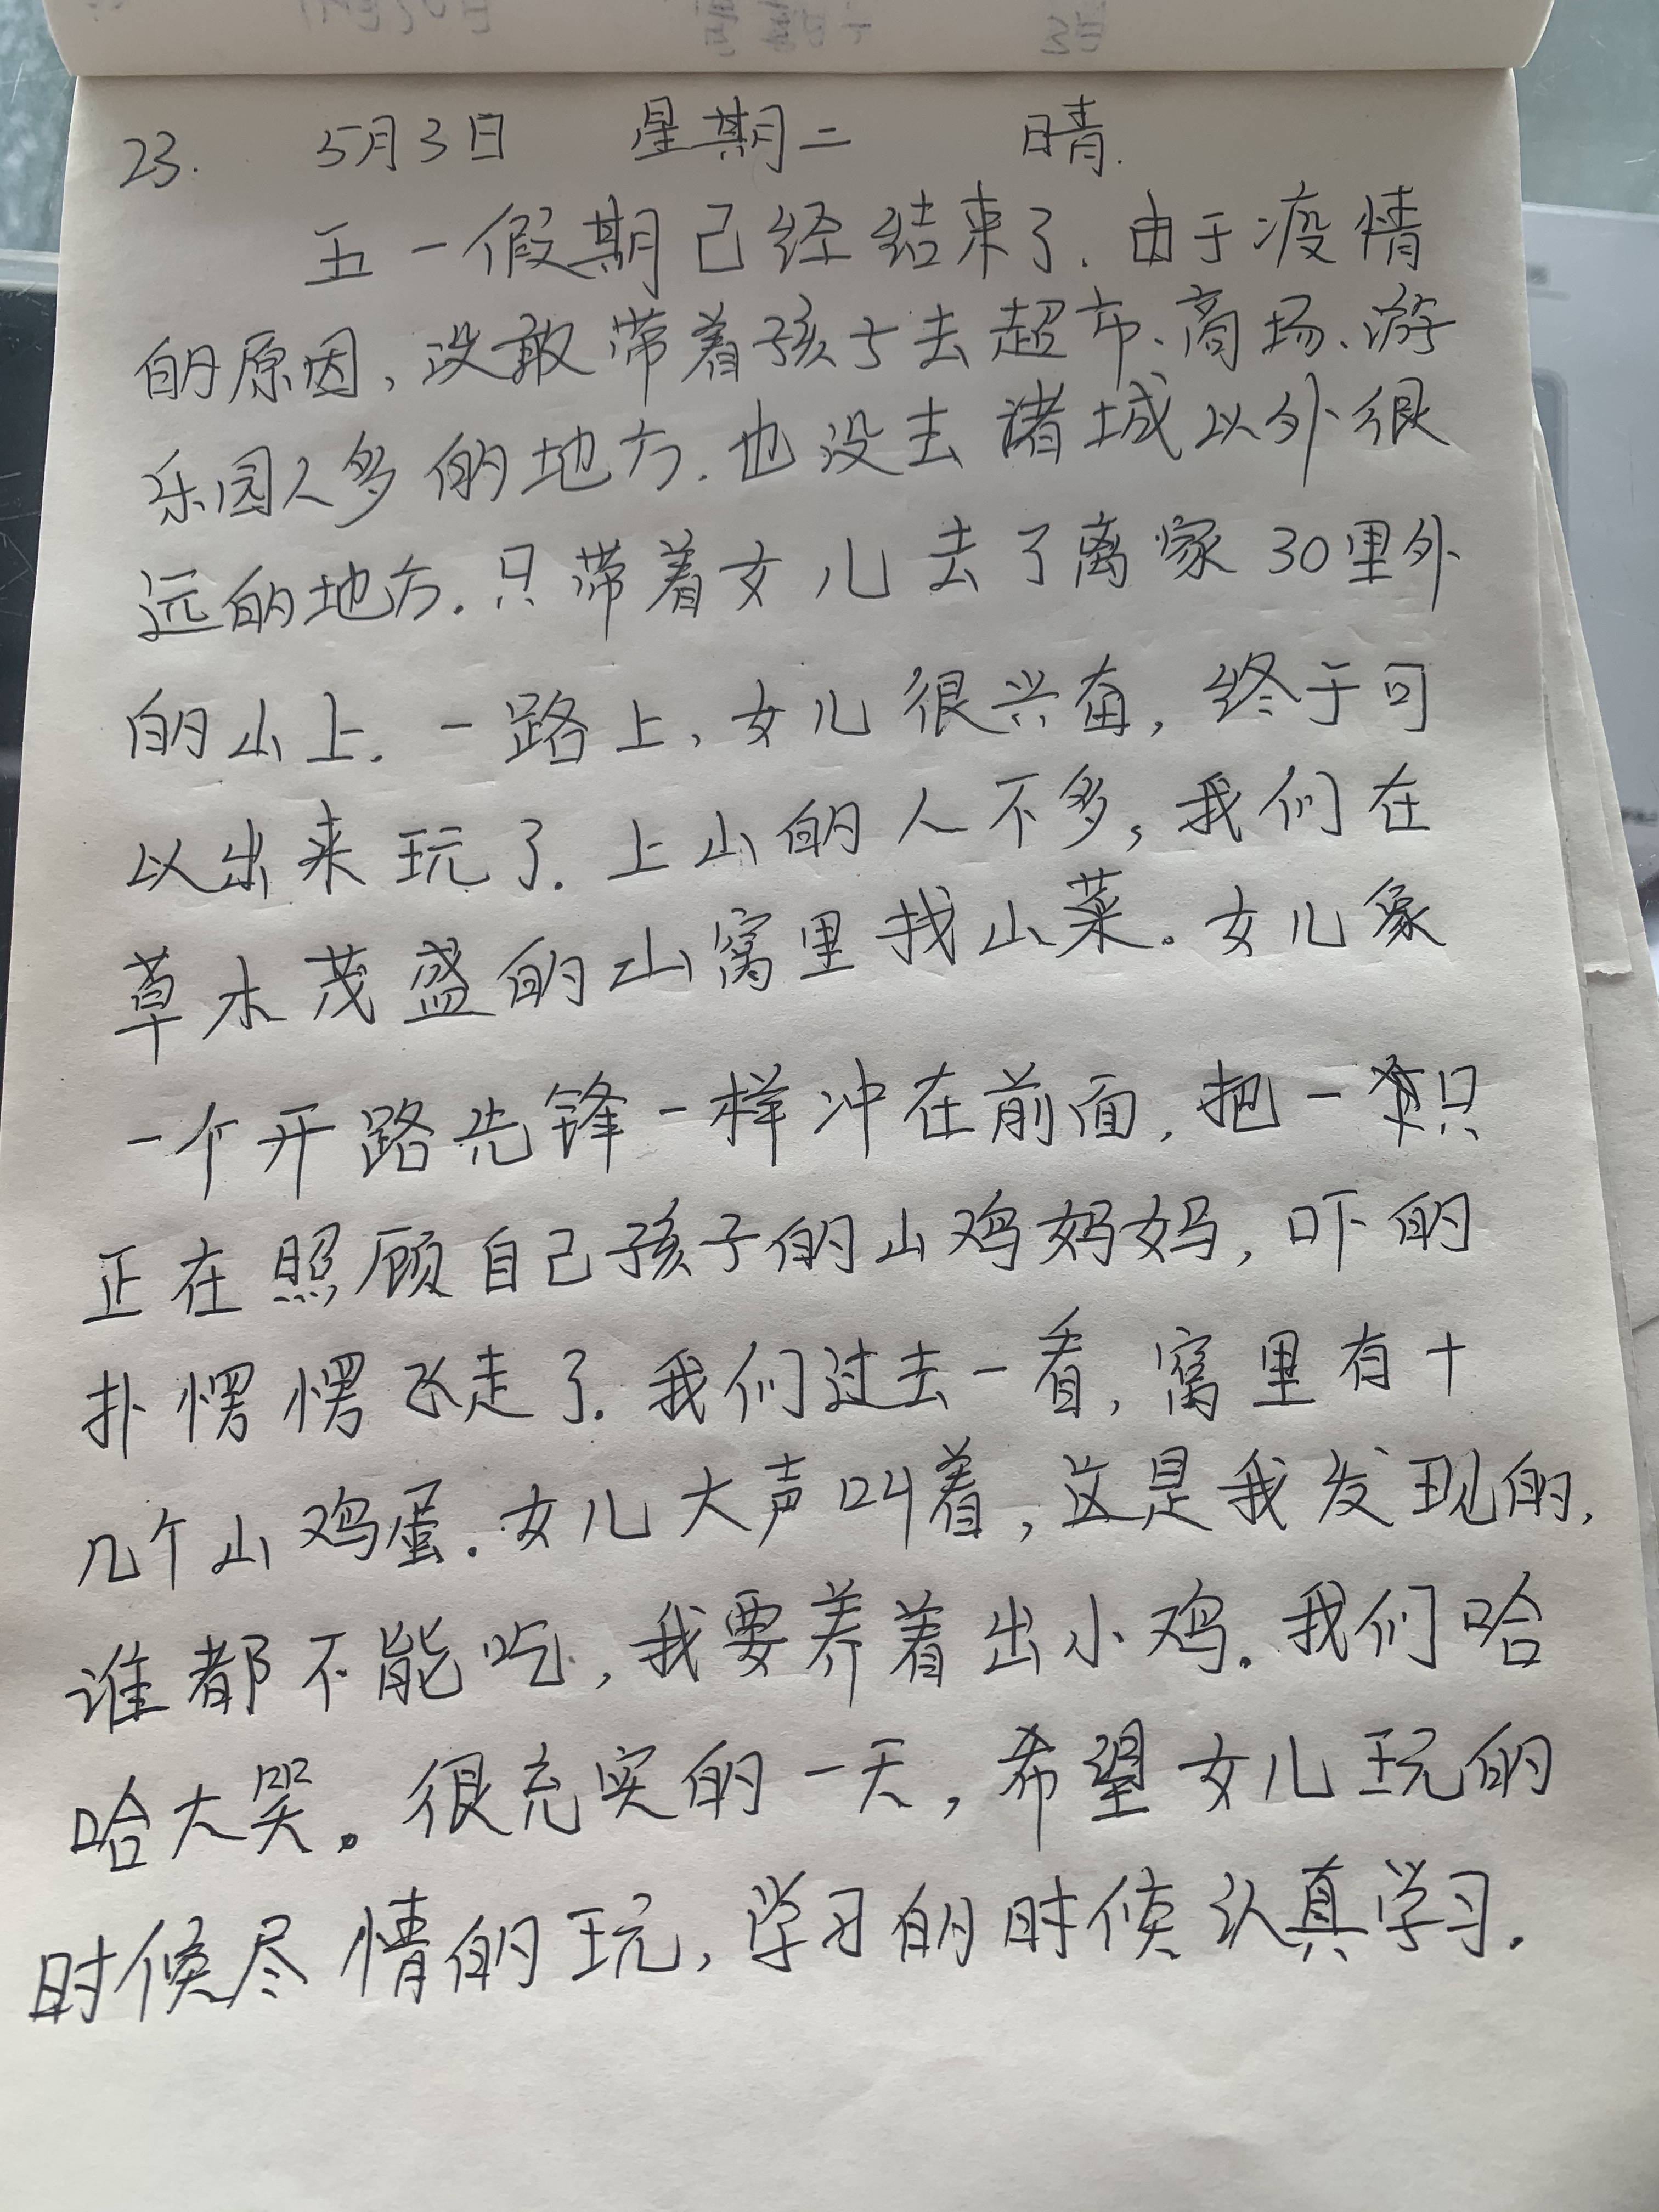 23. 5月3日 星期二 晴.
五一假期已经结束了.由于疫情
的原因,没敢带着孩子去超市、商场、游
乐园人多的地方.也没去诸城以外很
远的地方.只带着女儿去了离家30里外
的山上.一路上,女儿很兴奋,终于可
以出来玩了.上山的人不多,我们在
草木茂盛的山窝里找山菜。女儿象
一个开路先锋一样冲在前面,把一只
正在照顾自己孩子的山鸡妈妈,吓的
扑愣愣飞走了.我们过去一看,窝里有十
几个山鸡蛋.女儿大声叫着,这是我发现的,
谁都不能吃,我要养着出小鸡.我们哈
哈大笑。很充实的一天,希望女儿玩的
时候尽情的玩,学习的时候认真学习.